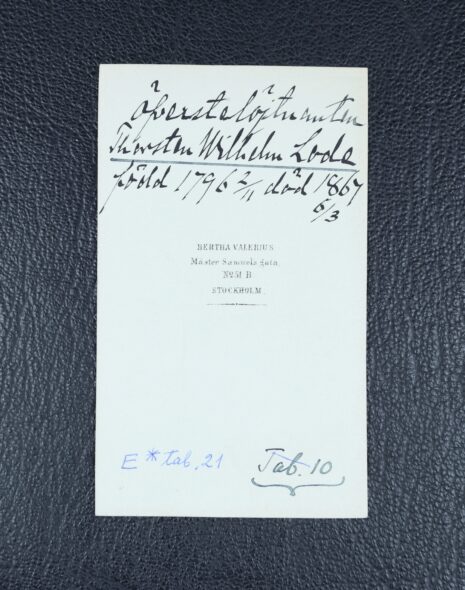 öfverstelöjtnanten
Thorsten Wilhelm Lode
född 1796 2/11 död 1867
6/3
BERTHA VALERIUS
Mäster Samuels gata
No 51 B
STOCKHOLM.
E * tab. 21
Tab. 10